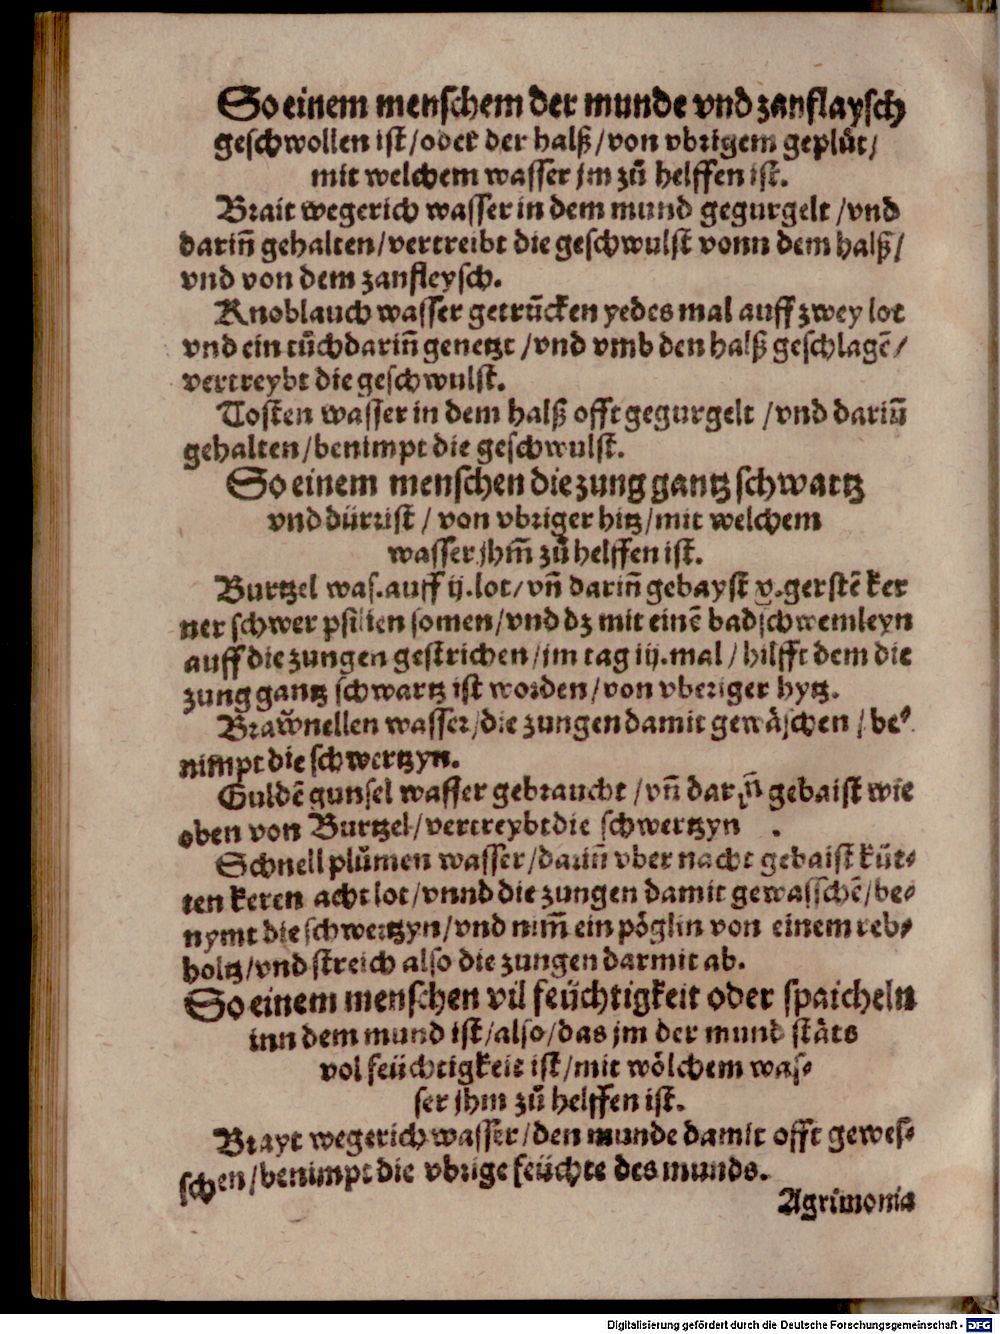 So einem menschem der munde vnd zanflaysch
geschwollen ist / oder der halß / von vbrigem geplůt /
mit welchem wasser jm zů helffen ist.
Brait wegerich wasser in dem mund gegurgelt / vnd
darin̄ gehalten / vertreibt die geschwulst vonn dem halß /
vnd von dem zanfleysch.
Knoblauch wasser getrūcken yedes mal auff zwey lot
vnd ein tůch darin̄ genetzt / vnd vmb den halß geschlagē /
vertreybt die geschwulst.
Tosten wasser in dem halß offt gegurgelt / vnd darin̄
gehalten / benimpt die geschwulst.
So einem menschen die zung gantz schwartz
vnd dürr ist / von vbriger hitz / mit welchem
wasser jhm̄ zů helffen ist.
Burtzel was. auff ij. lot / vn̄ darin̄ gebayst v. gerstē ker
ner schwer psilien somen / vnd dz mit einē badschwemleyn
auff die zungen gestrichen / im tag iij. mal / hilfft dem die
zung gantz schwartz ist worden / von vberiger hytz.
Brawnellen wasser / die zungen damit gewäschen / be⸗
nimpt die schwertzyn.
Guldē gunsel wasser gebraucht / vn̄ darin̄ gebaist wie
oben von Burtzel / vertreybt die schwertzyn .
Schnell plůmen wasser / darin̄ vber nacht gebaist küt⸗
ten keren acht lot / vnnd die zungen damit gewasschē / be⸗
nymt die schwertzyn / vnd nim̄ ein pöglin von einem reb⸗
holtz / vnd streich also die zungen darmit ab.
So einem menschen vil feüchtigkeit oder spaicheln
inn dem mund ist / also / das jm der mund stäts
vol feüchtigkeit ist / mit wölchem was⸗
ser jhm zů helffen ist.
Brayt wegerich wasser / den munde damit offt gewes⸗
schen / benimpt die vbrige feüchte des munds.
Agrimonia
Digitalisierung gefördert durch die Deutsche Forschungsgemeinschaft - DFG